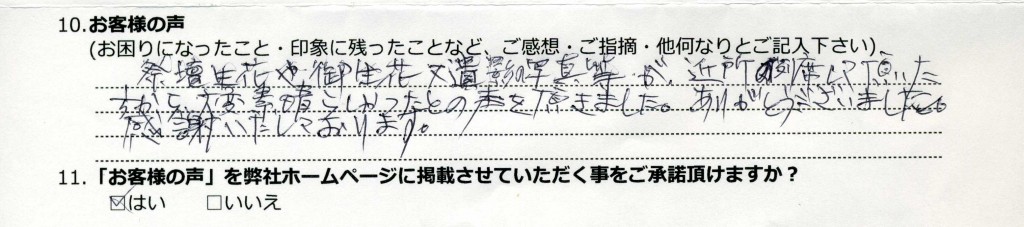 10.お客様の声
(お困りになったこと・印象に残ったことなど、ご感想・ご指摘・他何なりとご記入下さい)
祭壇生花や御生花又遺影の写真等が、近所の御席して頂いた
方から、大変素晴らしかったとの声を頂きました。ありがとうございました。
感謝いたしております。
11.「お客様の声」を弊社ホームページに掲載させていただく事をご承諾頂けますか？
☑はい □いいえ